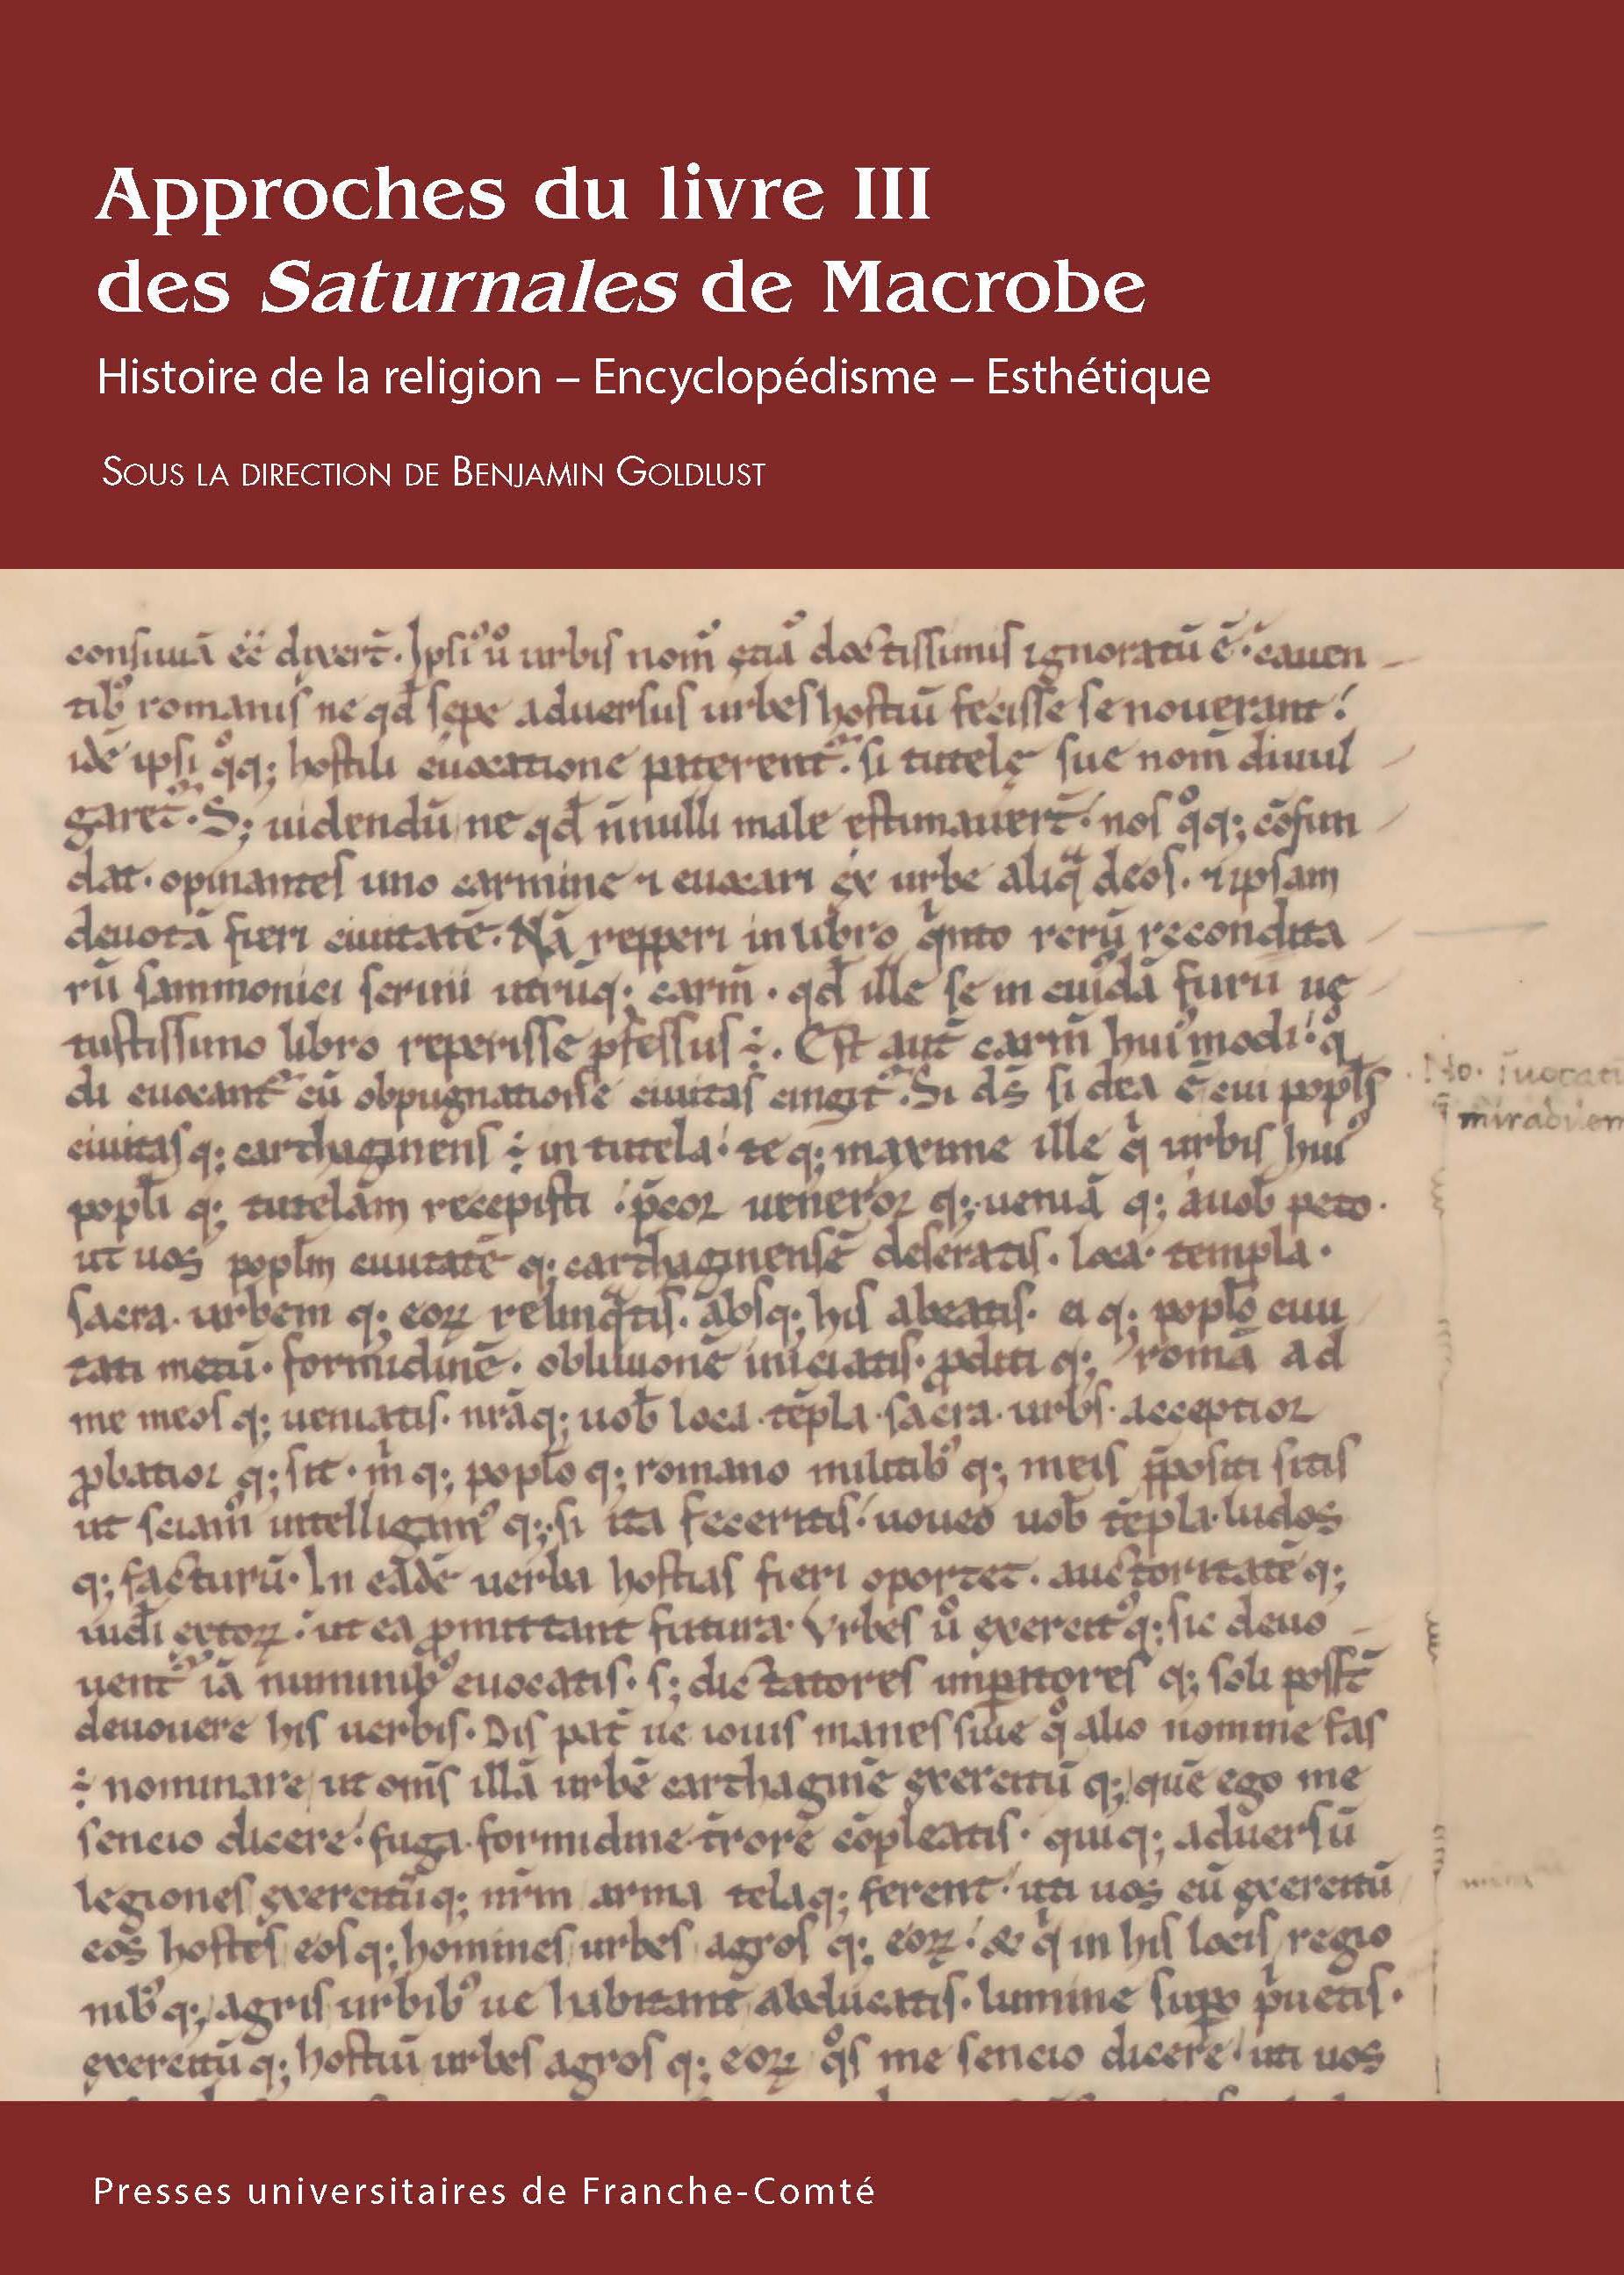 Approches du livre III
des Saturnales de Macrobe
Histoire de la religion – Encyclopédisme – Esthétique
Sous la direction de Benjamin Goldlust
consiuiā eē dixert̄. Ipsiꝰ ů urbis nom̄ etiā doctissimis ignoratū ē. cauen
tibꝰ romanis ne qđ sepe aduersus urbes hostiū fecisse se nouerant
idē ipsi qͦq; hostili euocatione paterent̄. si tutelę sue nom̄ diuul
garet̄. S; uidendū ne qđ n̄nulli male estimauert̄. nos qͦq; cōfun
dat. opinantes uno carmine ⁊ euocari ex urbe aliqͣ deos. ⁊ ipsam
deuotā fieri ciuitatē. Nā repperi in libro qͥnto rerū recondita
rū sammonici sereni utrūq; carm̄. qđ ille se in cuiꝰdā furii ue
tustissimo libro reperisse ꝓfessus ÷. Est aut̄ carm̄ huiꝰmodi qͦ
di euocant̄ cū obpugnatione ciuitas cingit̄. Si ds̄ si dea ē cui popl̄s
ciuitas q; carthaginens ÷ in tutela. te q; maxime ille qͥ urbis huiꝰ
popl̄i q; tutelam recepisti p̄coꝛ ueneroꝛ q; ueniā q; a uob̄ peto.
ut uos popl̄m ciuitatē q; carthaginensē deseratis. loca. templa.
sacra. urbem q; eoꝝ relinqͣtis. absq; his abeatis. ei q; popl̄o ciui
tati metū. formidinē. obliuionē iniciatis. ꝓditi q; romā ad
me meos q; ueniatis. nr̄aq; uob̄ loca. tēpla. sacra. urbs. acceptioꝛ
ꝓbatioꝛ q; sit. mͥ q; popl̄o q; romano militibꝰ q; meis p̄positi sitis
ut sciamꝰ intelligamꝰ q; si ita feceritis. uoueo uob̄ tēpla. ludos
q; facturū. In eadē uerba hostias fieri oportet. auctoritatē q;
uidi extoꝝ. ut ea ꝓmittant futura. Vrbes ů exercitꝰ q; sic deuo
uent̄ iā numinibꝰ euocatis. s; dictatores imꝑatores q; soli poss̄t
deuouere his uerbis. Dis pat̄ ue iouis manes siue qͦ alio nomine fas
÷ nominare ut om̄s illā urbē carthaginē exercitū q; quē ego me
sencio dicere. fuga. formidine. t̄rore cōpleatis. quiq; aduersū
legiones exercitūq; nr̄m arma telaq; ferent. uti uos eū exercitū
eos hostes eosq; homines urbes agros q; eoꝝ. & qͥ in his locis regio
nibꝰ q; agris urbibꝰ ue habitant abducatis. lumine suꝑo pͥuetis.
exercitū q; hostiū urbes agros q; eoꝝ qͦs me sencio dicere. uti uos
Presses universitaires de Franche-Comté